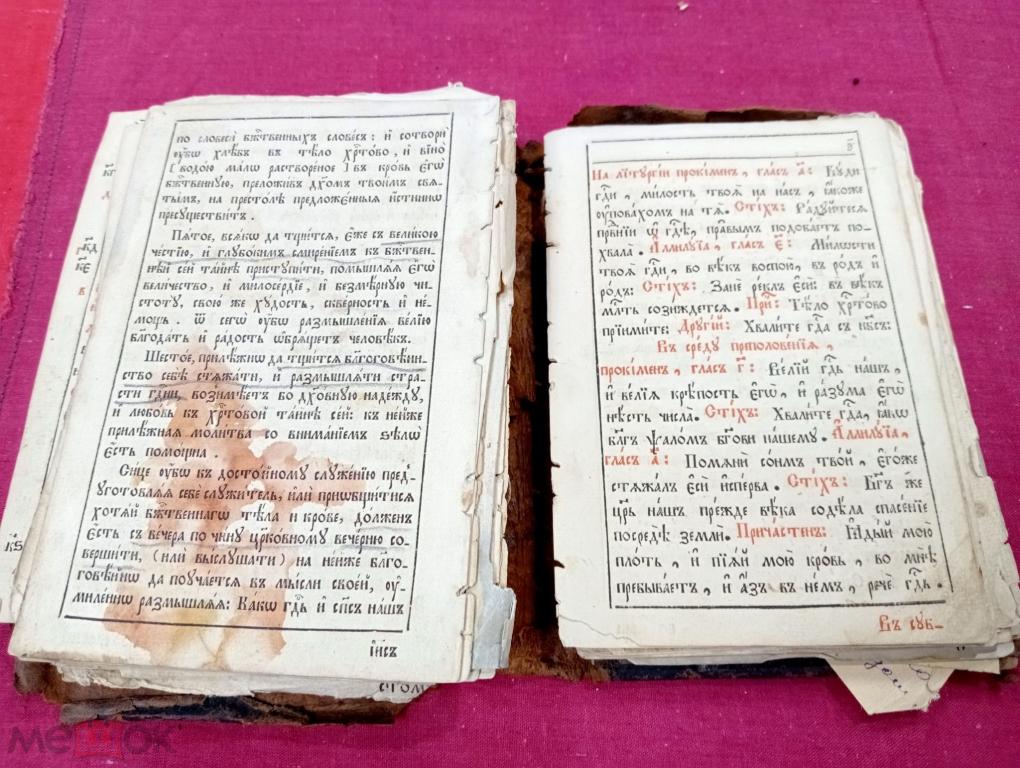 по словесѝ бж҃твенныхъ словесъ: и҆ сотворѝ
ᲂу҆́бѡ хлѣ́бъ въ тѣ́ло хрⷭ҇то́во, и҆ вїно̀
[водо́ю ма́лѡ растворе́ное] въ кро́вь є҆гѡ̀
бж҃твенную, преложи́въ дх҃омъ твои́мъ свѧ-
ты́мъ, на престо́лѣ предложе́нныѧ и҆́стиннѡ
пресуществи́тъ.
Пѧ́тое, всѧ́кѡ да тщи́тсѧ, є҆́же съ вели́кою
че́стїю, и҆ глубо́кимъ смире́нїемъ къ бж҃твен-
нѣй се́й та́йнѣ приступи́ти, помышлѧ́ѧ є҆гѡ̀
вели́чество, и҆ милосе́рдїе, и҆ безмѣ́рную чи-
стотꙋ̀, свою́ же хꙋ́дость, скве́рность и҆ не́-
мощь. ѿ сегѡ̀ ᲂу҆́бѡ размышле́нїѧ ве́лїю
блгⷣа́ть и҆ ра́дость ѡ҆брѧ́щетъ человѣ́къ.
Шесто́е, прилѣ́жнѡ да тщи́тсѧ бл҃гоговѣ́ин-
ство себѣ̀ стѧжа́ти, и҆ размышлѧ́ти стра̑-
сти гдⷭ҇ни, возимѣ́етъ бо дх҃о́вную наде́ждꙋ,
и҆ любо́вь къ хрⷭ҇то́вой та́йнѣ се́й: къ не́йже
прилѣ́жнаѧ моли́тва со внима́нїемъ ѕѣлѡ̀
є҆́сть помо́щна.
Си́це ᲂу҆́бѡ къ досто́йномꙋ слꙋже́нїю пред̾-
ꙋготовлѧ́ѧ себѐ слꙋжи́тель, и҆лѝ приѡбщи́тисѧ
хотѧ́й бж҃твеннагѡ тѣ́ла и҆ кро́ве, до́лженъ
є҆́сть съ ве́чера по чи́нꙋ цр҃ко́вномꙋ вече́рню со-
верши́ти, (и҆лѝ вы́слꙋшати) на не́йже бл҃го-
говѣ́йнѡ да поꙋча́етсѧ въ мы́сли свое́й, ᲂу҆-
миле́ннѡ размышлѧ́ѧ: Ка́кѡ гдⷭ҇ь и҆ сп҃съ на́шъ
і҆и҃съ
На лїтꙋргі́и проки́менъ, гла́съ а҃: Бꙋ́ди
гдⷭ҇и, ми́лость твоѧ̀ на на́съ, ꙗ҆́коже
ᲂу҆пова́хомъ на тѧ̀. Сті́хъ: Ра́дꙋйтесѧ
првⷣнїи ѡ҆ гдⷭ҇ѣ, пра̑вымъ подоба́етъ по-
хвала̀. А҆ллилꙋ́їа, гла́съ є҃: Ми́лѡсти
твоѧ̑ гдⷭ҇и, во вѣ́къ воспою̀, въ ро́дъ и҆
ро́дъ: Сті́хъ: Занѐ ре́клъ є҆сѝ: въ вѣ́къ
млⷭ҇ть сози́ждетсѧ. При́ч: Тѣ́ло хрⷭ҇то́во
прїими́те: Дрꙋгі́й: Хвали́те гдⷭ҇а съ нб҃съ:
Въ сре́дꙋ преполове́нїѧ,
проки́менъ, гла́съ г҃: Ве́лїй гдⷭ҇ь на́шъ,
и҆ ве́лїѧ крѣ́пость є҆гѡ̀, и҆ ра́зꙋма є҆гѡ̀
нѣ́сть числа̀. Сті́хъ: Хвали́те гдⷭ҇а, ꙗ҆́кѡ
бл҃гъ ѱало́мъ бг҃ови на́шемꙋ. А҆ллилꙋ́їа,
гла́съ а҃: Помѧнѝ со́нмъ тво́й, є҆го́же
стѧжа́лъ є҆сѝ и҆спе́рва. Сті́хъ: Бг҃ъ же
цр҃ь на́шъ, пре́жде вѣ́ка содѣ́ла спасе́нїе
посредѣ̀ землѝ. Прича́стенъ: Ꙗ҆ды́й мою̀
пло́ть, и҆ пїѧ́й мою̀ кро́вь, во мнѣ̀
пребыва́етъ, и҆ а҆́зъ въ не́мъ, речѐ гдⷭ҇ь.
Въ сꙋб-
мешок